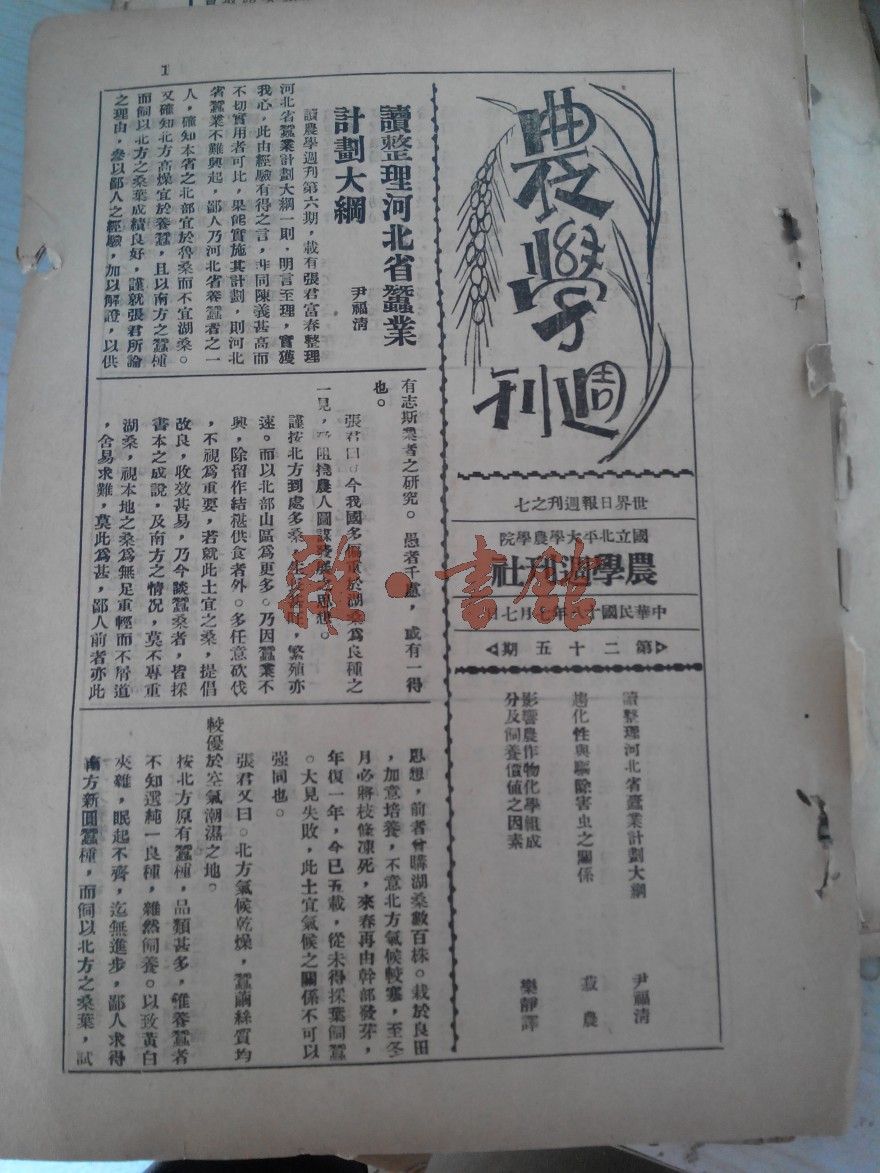 1
農學
週刊
世界日報週刊之七
國立北平大學農學院
農學週刊社
中華民國十八年七月七日
第二十五期
讀整理河北省蠶業計劃大綱 尹福清
趨化性與驅除害虫之關係 農
影響農作物化學組成
分及飼養價值之因素 樂靜譯
讀整理河北省蠶業
計劃大綱
尹福清
讀農學週刊第六期，載有張君富春整理
河北省蠶業計劃大綱一則，明言至理，實獲
我心，此由經驗有得之言，非同陳義甚高而
不切實用者可比，果能實施其計劃，則河北
省蠶業不難興起，鄙人乃河北省養蠶者之一
人，確知本省之北部宜於魯桑而不宜湖桑。
又確知北方高燥宜於養蠶，且以南方之蠶種
而飼以北方之桑葉成績良好，謹就張君所論
之理由，參以鄙人之經驗，加以解證，以供
有志斯業者之研究。愚者千慮，或有一得
也。
張君曰，今我國多偏重於湖桑為良種之
一見，阻撓農人圖謀發展之思想。
謹按北方到處多桑，生長甚旺，繁殖亦
速。而以北部山區為更多。乃因蠶業不
興，除留作結椹供食者外。多任意砍伐
，不視為重要，若就此土宜之桑，提倡
改良，收效甚易，乃今談蠶桑者，皆採
書本之成說，及南方之情況，莫不專重
湖桑，視本地之桑為無足重輕而不屑道
，舍易求難，莫此為甚，鄙人前者亦此
思想，前者曾購湖桑數百株。栽於良田
，加意培養，不意北方氣候較寒，至冬
月必將枝條凍死，來春再由幹部發芽，
年復一年，今已五載，從未得採葉飼蠶
。大見失敗，此土宜氣候之關係不可以
强同也。
張君又曰。北方氣候乾燥，蠶繭絲質均
較優於空氣潮濕之地。
按北方原有蠶種，品類甚多，惟養蠶者
不知選純一良種，雜然飼養。以致黃白
夾雜，眠起不齊，迄無進步，鄙人求得
南方新圓蠶種，而飼以北方之桑葉，試
雜·書館